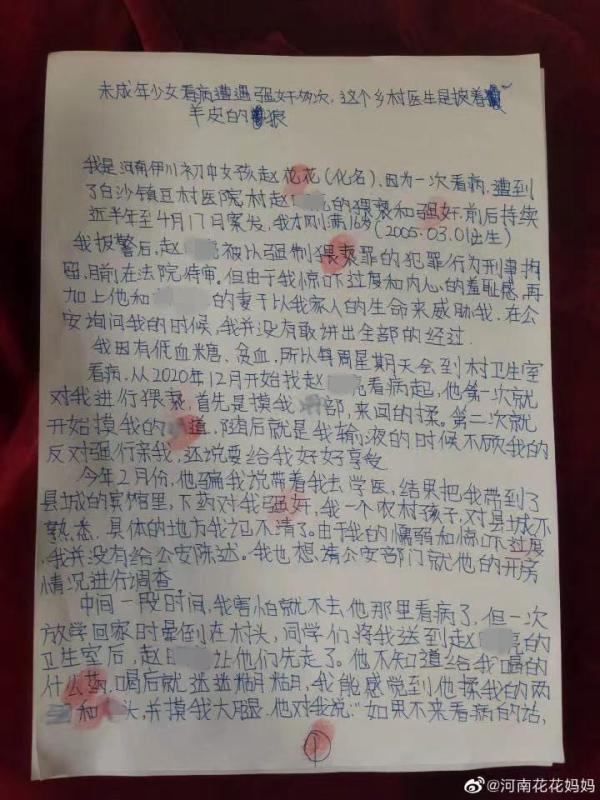 未成年少女看病遭遇强奸多次，这个乡村医生是披着
羊皮的狼
我是河南伊川初中女孩赵花花(化名)，因为一次看病，遭到
了白沙镇豆村医院村赵亮的猥亵和强奸，前后持续
近半年至4月17日案发，我才刚满16岁(2005.03.01出生)
我报警后，赵亮被以强制猥亵罪的犯罪行为刑事拘
留，目前在法院待审。但由于我惊吓过度和内心的羞耻感，再
加上他和的妻子以我家人的生命来威胁我，在公
安询问我的时候，我并没有敢讲出全部的经过.
我因有低血糖、贫血，所以每周星期天会到村卫生室
看病，从2020年12月开始找赵亮看病起，他第一次就
对我进行猥亵，首先是摸我部，来回的揉。第二次就
开始摸我的道，随后就是我输液的时候不顾我的
反对强行亲我，还说要给我好好享受
今年2月份，他骗我说带着我去学医，结果把我带到了
县城的宾馆里，下药对我强奸，我一个农村孩子，对县城不
熟悉，具体的地方我记不清了。由于我的懦弱和惊吓过度，
我并没有给公安陈述。我也想请公安部门就他的开房
情况进行调查.
中间一段时间，我害怕就不去他那里看病了，但一次
放学回家时晕倒在村头，同学们将我送到赵亮的
卫生室后，赵让他们先走了。他不知道给我喝的
什么药，喝后就迷迷糊糊，我能感觉到他揉我的两
和头，并摸我大腿.他对我说:"如果不来看病的话，
1
@河南花花妈妈